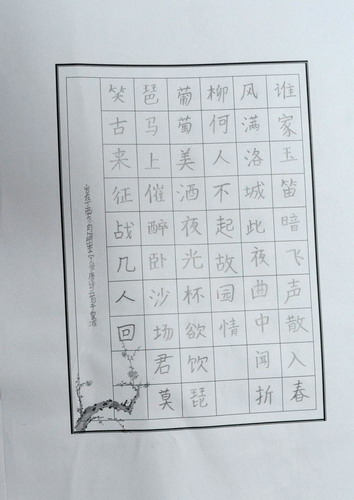 谁家玉笛暗飞声散入春
风满洛城此夜曲中闻折
柳何人不起故园情
葡萄美酒夜光杯欲饮琵
琶马上催醉卧沙场君莫
笑古来征战几人回